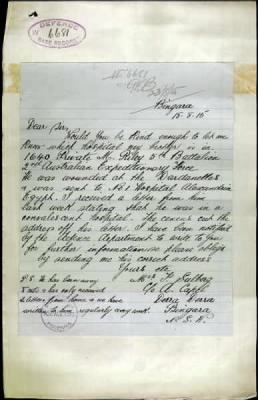 DEFENCE
6681
BASE RECORDS
Bingara
15.8.15
Dear Sir,
Would You be Kind enough to let me
Know which hospital my brother is in
1640 Private M. Riley 5th Battalion
2nd Australian Expeditionary Force
He was wounded at the Dardanelles
& was sent to No 1 Hospital Alexandria
Egypt. I received a letter from him
last week stating that he was in a
convalescent hospital. The censor cut the
address off his letter. I have been notified
by the Defence Department to write to You
for further information so please oblige
by sending me his correct address
Yours etc
P.S. He has been away
5 mths & has only received
2 letters from home & we have
written to him regularly every week.
C/o A. Capel
Derra Derra
Bingara
N.S.W.